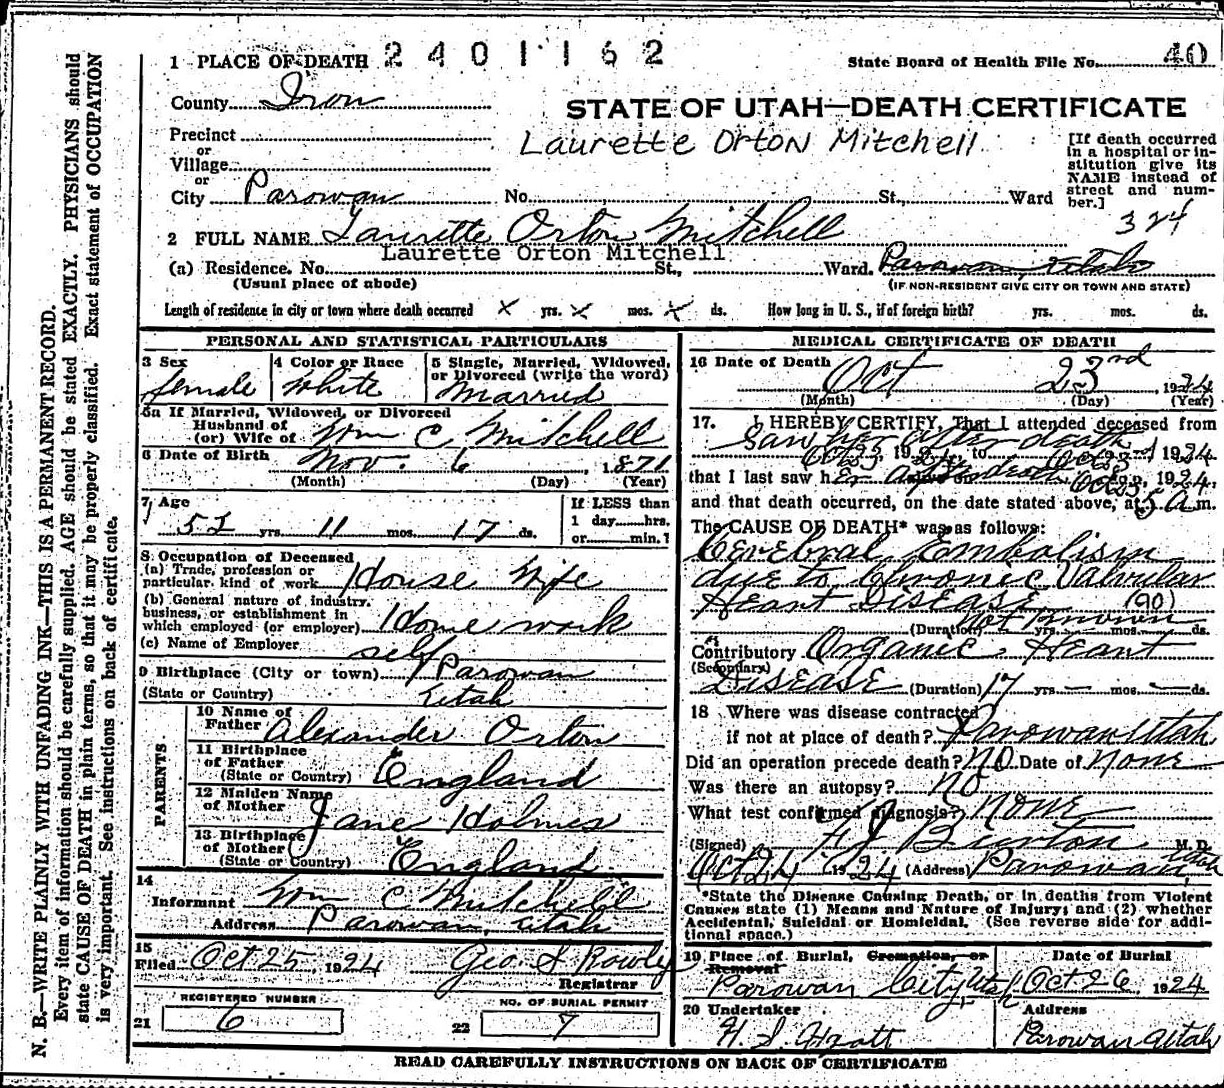 1 PLACE OF DEATH 2401162
State Board of Health File No. 40
County Iron
STATE OF UTAH—DEATH CERTIFICATE
Precinct
or
Village
or
City Parowan
Laurette Orton Mitchell
[If death occurred in a hospital or institution give its NAME instead of street and number.]
No. St., Ward
324
2 FULL NAME Laurette Orton Mitchell
Laurette Orton Mitchell
(a) Residence. No. St., Ward. Parowan, Utah
(Usual place of abode)
(IF NON-RESIDENT GIVE CITY OR TOWN AND STATE)
Length of residence in city or town where death occurred x yrs. x mos. x ds. How long in U. S., if of foreign birth? yrs. mos. ds.
PERSONAL AND STATISTICAL PARTICULARS
3 Sex female
4 Color or Race White
5 Single, Married, Widowed, or Divorced (write the word) Married
5a If Married, Widowed, or Divorced
Husband of
(or) Wife of Wm C Mitchell
6 Date of Birth Nov. 6, 1871
(Month) (Day) (Year)
7 Age yrs. 11 mos. 17 ds.
If LESS than
1 day hrs.
or min.?
8 Occupation of Deceased
(a) Trade, profession or
particular kind of work House Wife
(b) General nature of industry,
business, or establishment in
which employed (or employer) Home work
(c) Name of Employer self
9 Birthplace (City or town) Parowan
(State or Country) Utah
PARENTS
10 Name of
Father Alexander Orton
11 Birthplace
of Father
(State or Country) England
12 Maiden Name
of Mother Jane Holmes
13 Birthplace
of Mother
(State or Country) England
14
Informant Wm C Mitchell
Address Parowan, Utah
15
Filed Oct 25, 1924 Geo. S Rowley
Registrar
REGISTERED NUMBER
21 6
NO. OF BURIAL PERMIT
22 7
MEDICAL CERTIFICATE OF DEATH
16 Date of Death Oct 23rd 1924
(Month) (Day) (Year)
17. I HEREBY CERTIFY, That I attended deceased from
Saw her after death
Oct 23, 1924, to Oct 23 1924
that I last saw her after death Oct 23, 1924,
and that death occurred, on the date stated above, at 5 a.m.
The CAUSE OF DEATH* was as follows:
Cerebral Embolism
due to Chronic Valvular
Heart Disease (90)
(Duration) not known yrs. mos. ds.
Contributory Organic Heart
(Secondary)
Disease (Duration) 17 yrs. – mos. – ds.
18 Where was disease contracted
if not at place of death? Parowan Utah
Did an operation precede death? No Date of None
Was there an autopsy? No
What test confirmed diagnosis? None
(Signed) M. D.
Oct 24 1924 (Address) Parowan, Utah
*State the Disease Causing Death, or in deaths from Violent
Causes state (1) Means and Nature of Injury; and (2) whether
Accidental, Suicidal or Homicidal. (See reverse side for addi-
tional space.)
19 Place of Burial, Cremation, or Removal
Parowan City Utah
Date of Burial
Oct 26, 1924
20 Undertaker
Address
Parowan Utah
READ CAREFULLY INSTRUCTIONS ON BACK OF CERTIFICATE
N. B.—WRITE PLAINLY WITH UNFADING INK—THIS IS A PERMANENT RECORD.
Every item of information should be carefully supplied. AGE should be stated EXACTLY. PHYSICIANS should
state CAUSE OF DEATH in plain terms, so that it may be properly classified. Exact statement of OCCUPATION
is very important. See instructions on back of certificate.